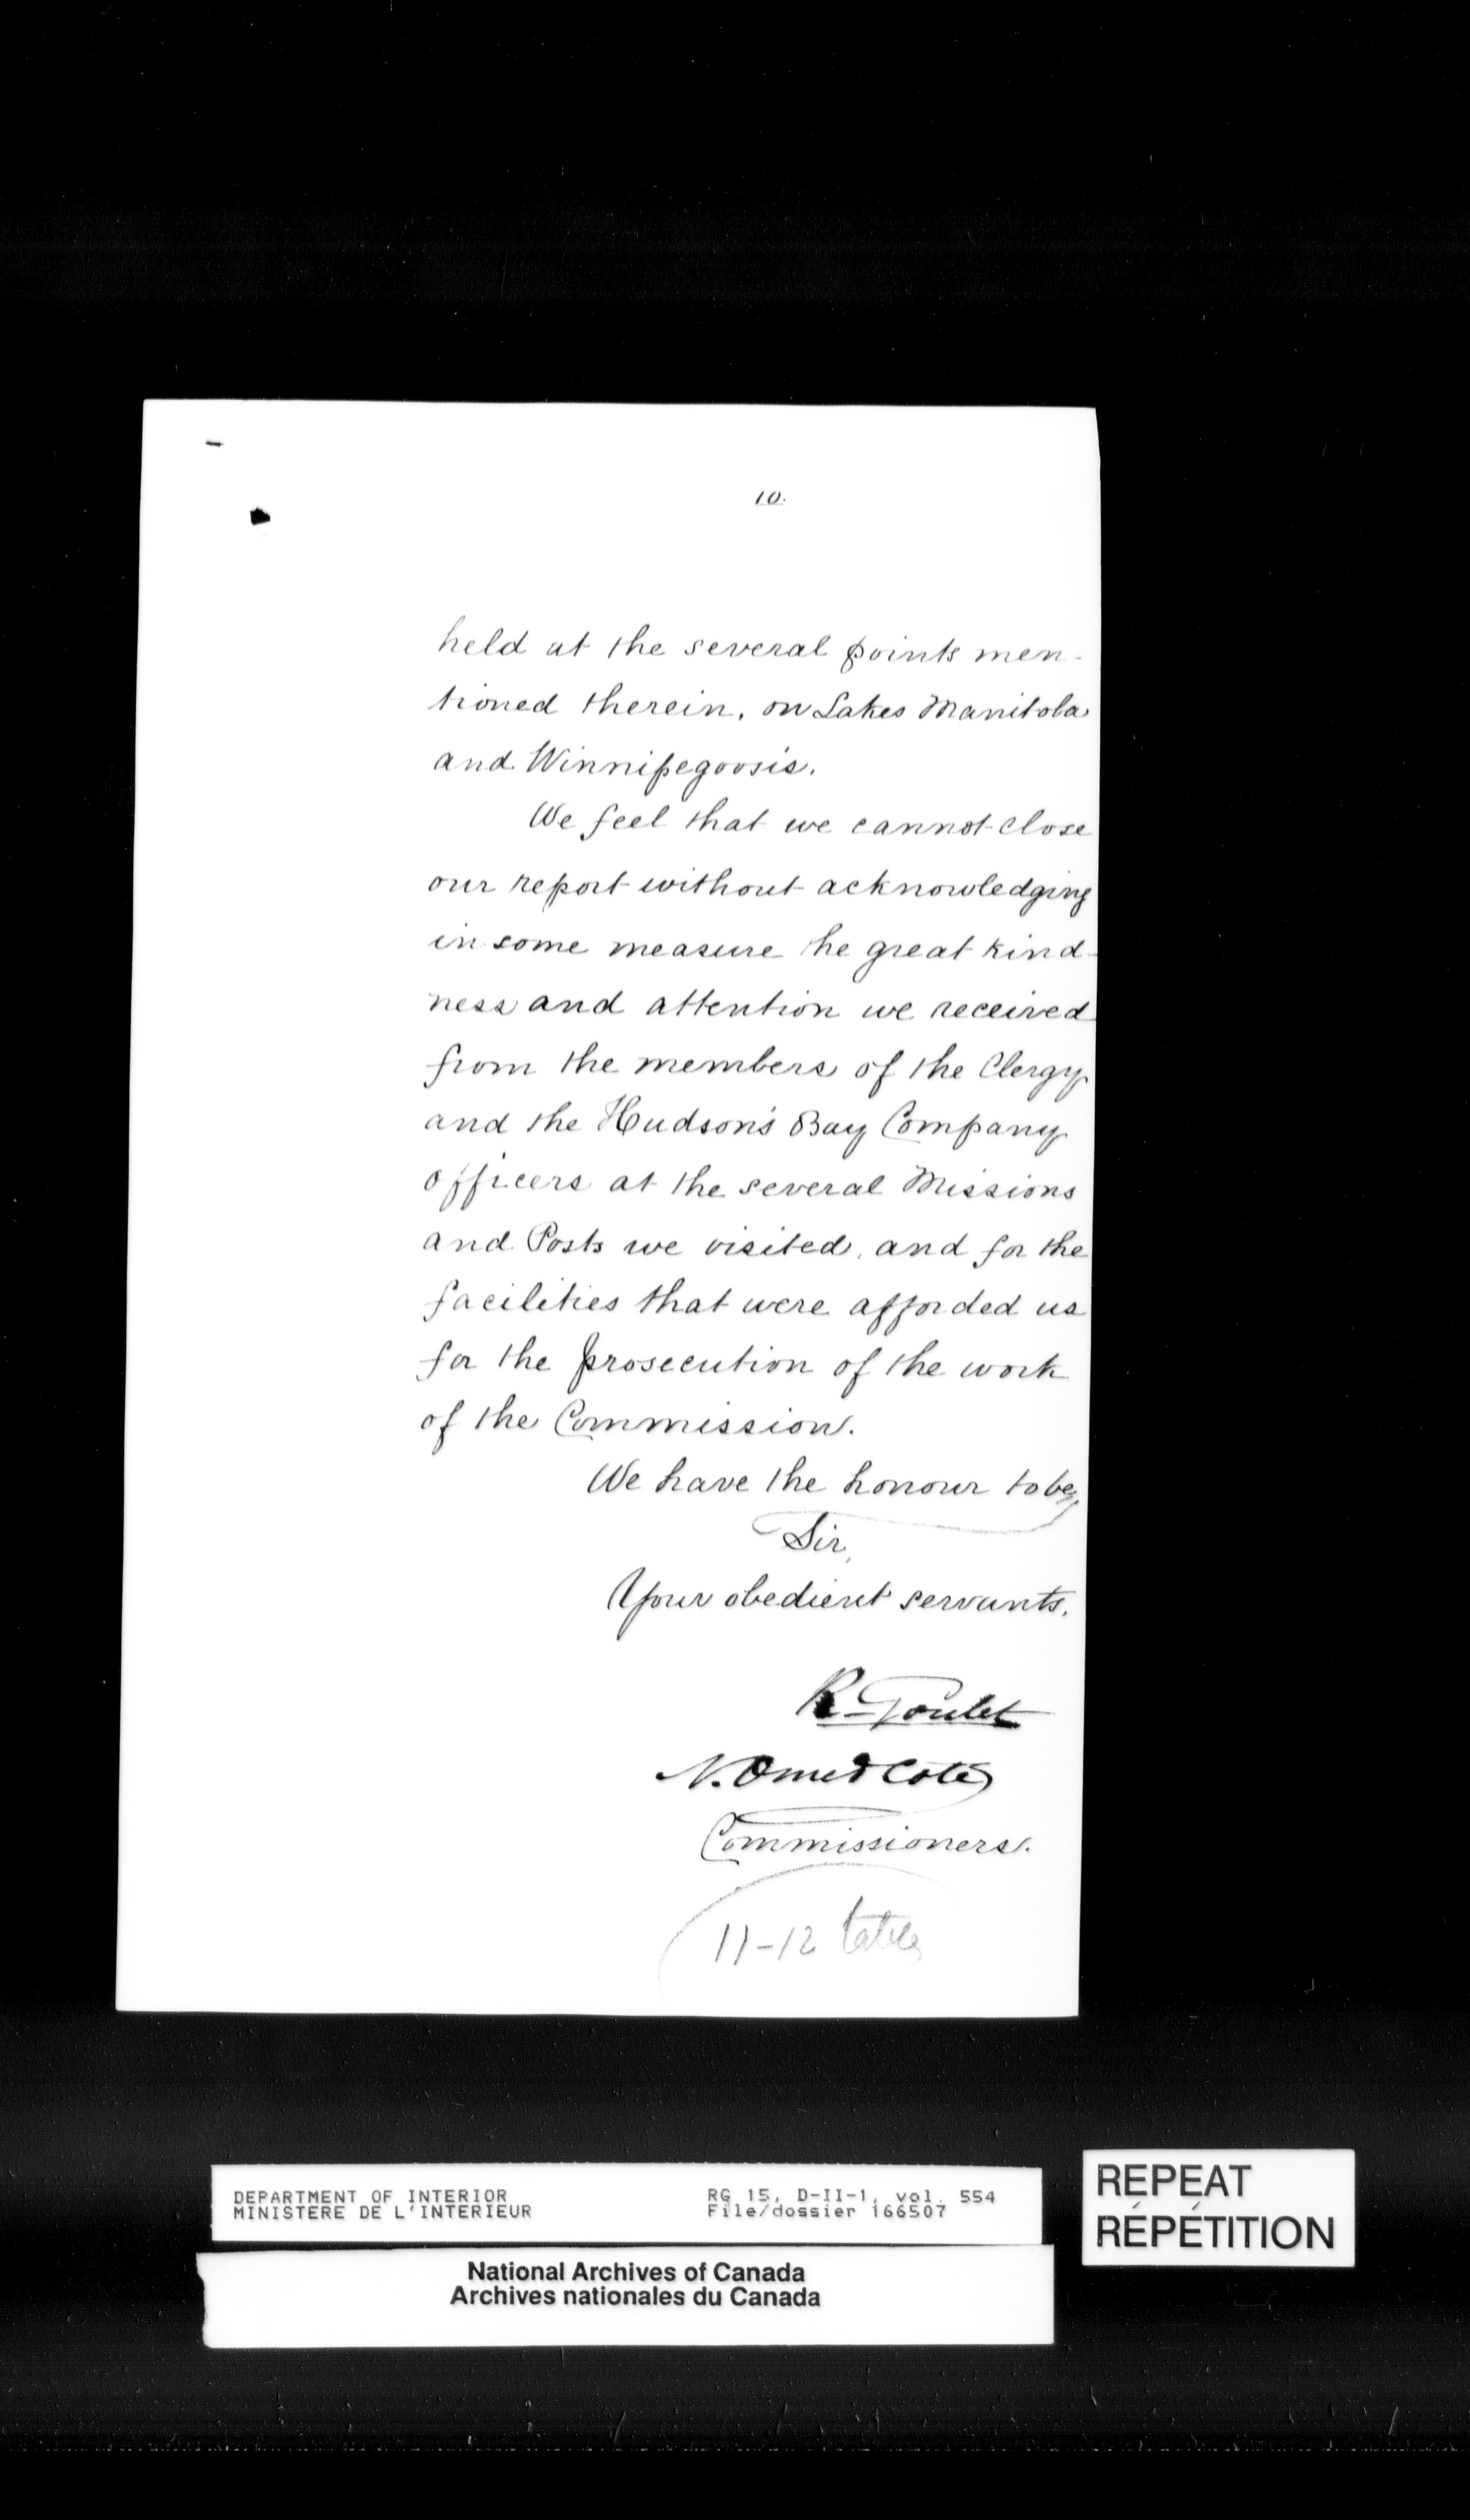 10.
held at the several points men-
tioned therein, on Lakes Manitoba
and Winnipegoosis.
We feel that we cannot close
our report without acknowledging
in some measure he great kind-
ness and attention we received
from the members of the Clergy
and the Hudson's Bay Company
officers at the several Missions
and Posts we visited, and for the
facilities that were afforded us
for the prosecution of the work
of the Commission.
We have the honour to be,
Sir,
Your obedient servants.
R. Goulet
N. Omer Coté
Commissioners.
11-12
DEPARTMENT OF INTERIOR RG 15, D-II-1, vol. 554
MINISTERE DE L'INTERIEUR File/dossier 166507
National Archives of Canada
Archives nationales du Canada
REPEAT
RÉPÉTITION